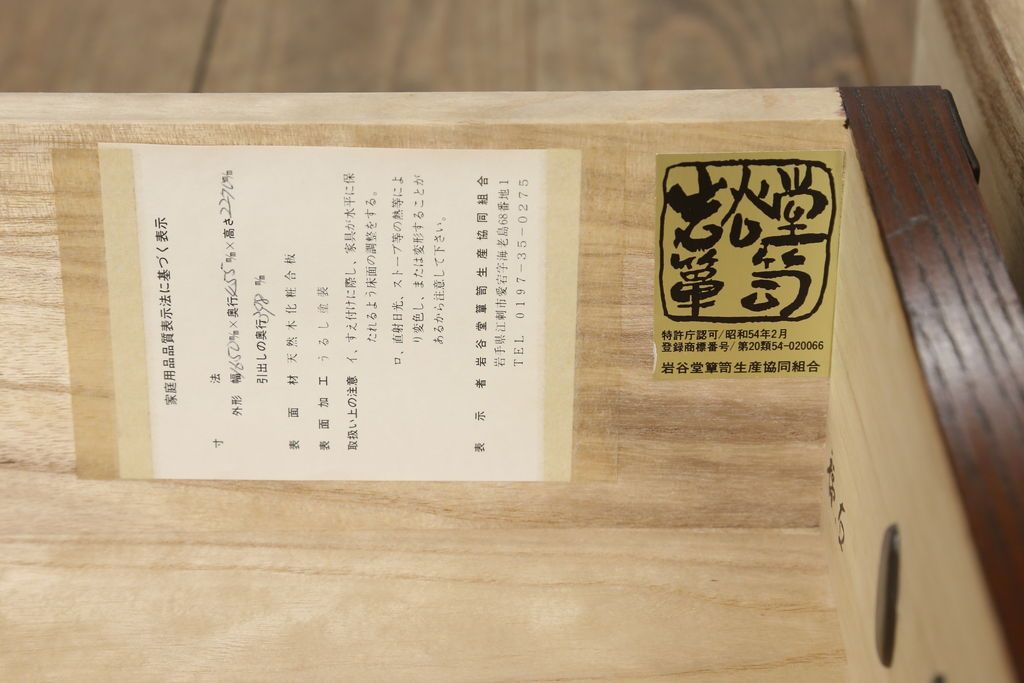 家庭用品品質表示法に基づく表示
寸法
外形 幅 650㎜×奥行455㎜×高さ2270㎜
引出しの奥行398㎜
表面材 天然木化粧合板
表面加工 うるし塗装
取扱い上の注意 イ、すえ付けに際し、家具が水平に保
たれるよう床面の調整をする。
ロ、直射日光、ストーブ等の熱等によ
り変色し、または変形することが
あるから注意して下さい。
表示者 岩谷堂簞笥生産協同組合
岩手県江刺市愛宕字海老島68番地1
TEL 0197-35-0275
岩谷堂
簞笥
特許庁認可/昭和54年2月
登録商標番号/第20類54-020066
岩谷堂簞笥生産協同組合